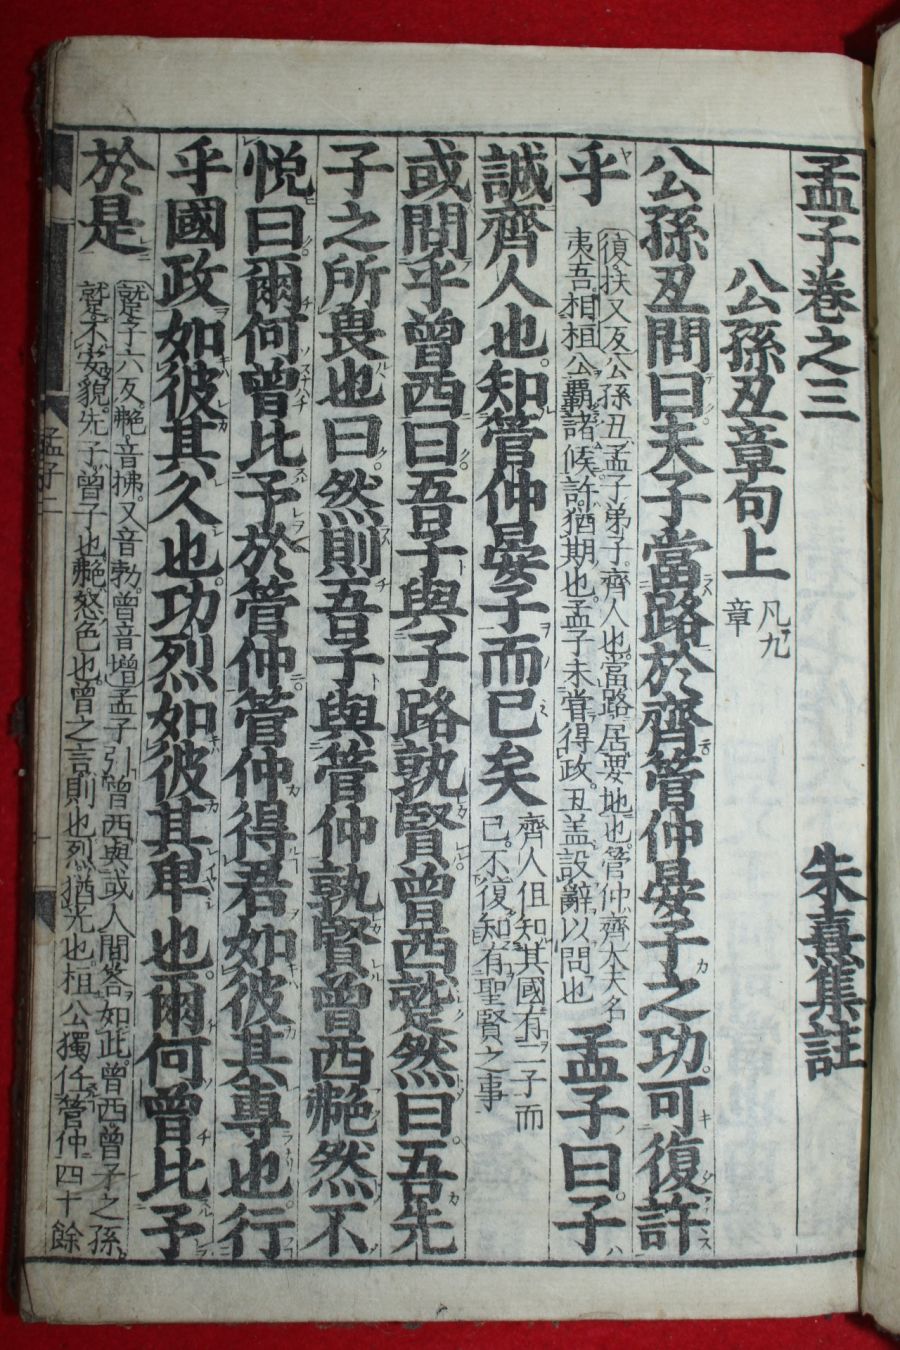 孟子卷之三　朱熹集註
公孫丑章句上 凡九
章
公孫丑問曰夫子當路於齊管仲晏子之功可復許
乎
復扶又反公孫丑孟子弟子齊人也當路居要地也管仲齊大夫名
夷吾相桓公覇諸侯許猶期也孟子未甞得政丑盖設辭以問也
孟子曰子
誠齊人也知管仲晏子而已矣
齊人但知其國有二子而
已不復知有聖賢之事
或問乎曾西曰吾子與子路孰賢曾西蹵然曰吾先
子之所畏也曰然則吾子與管仲孰賢曾西艴然不
悅曰爾何曾比予於管仲管仲得君如彼其專也行
乎國政如彼其久也功烈如彼其卑也爾何曾比予
於是
蹵子六反艴音拂又音勃曾音增孟子引曾西與或人問答如此曾西曾子之孫
蹵不安貌先子曾子也艴怒色也曾之言則也烈猶光也桓公獨任管仲四十餘